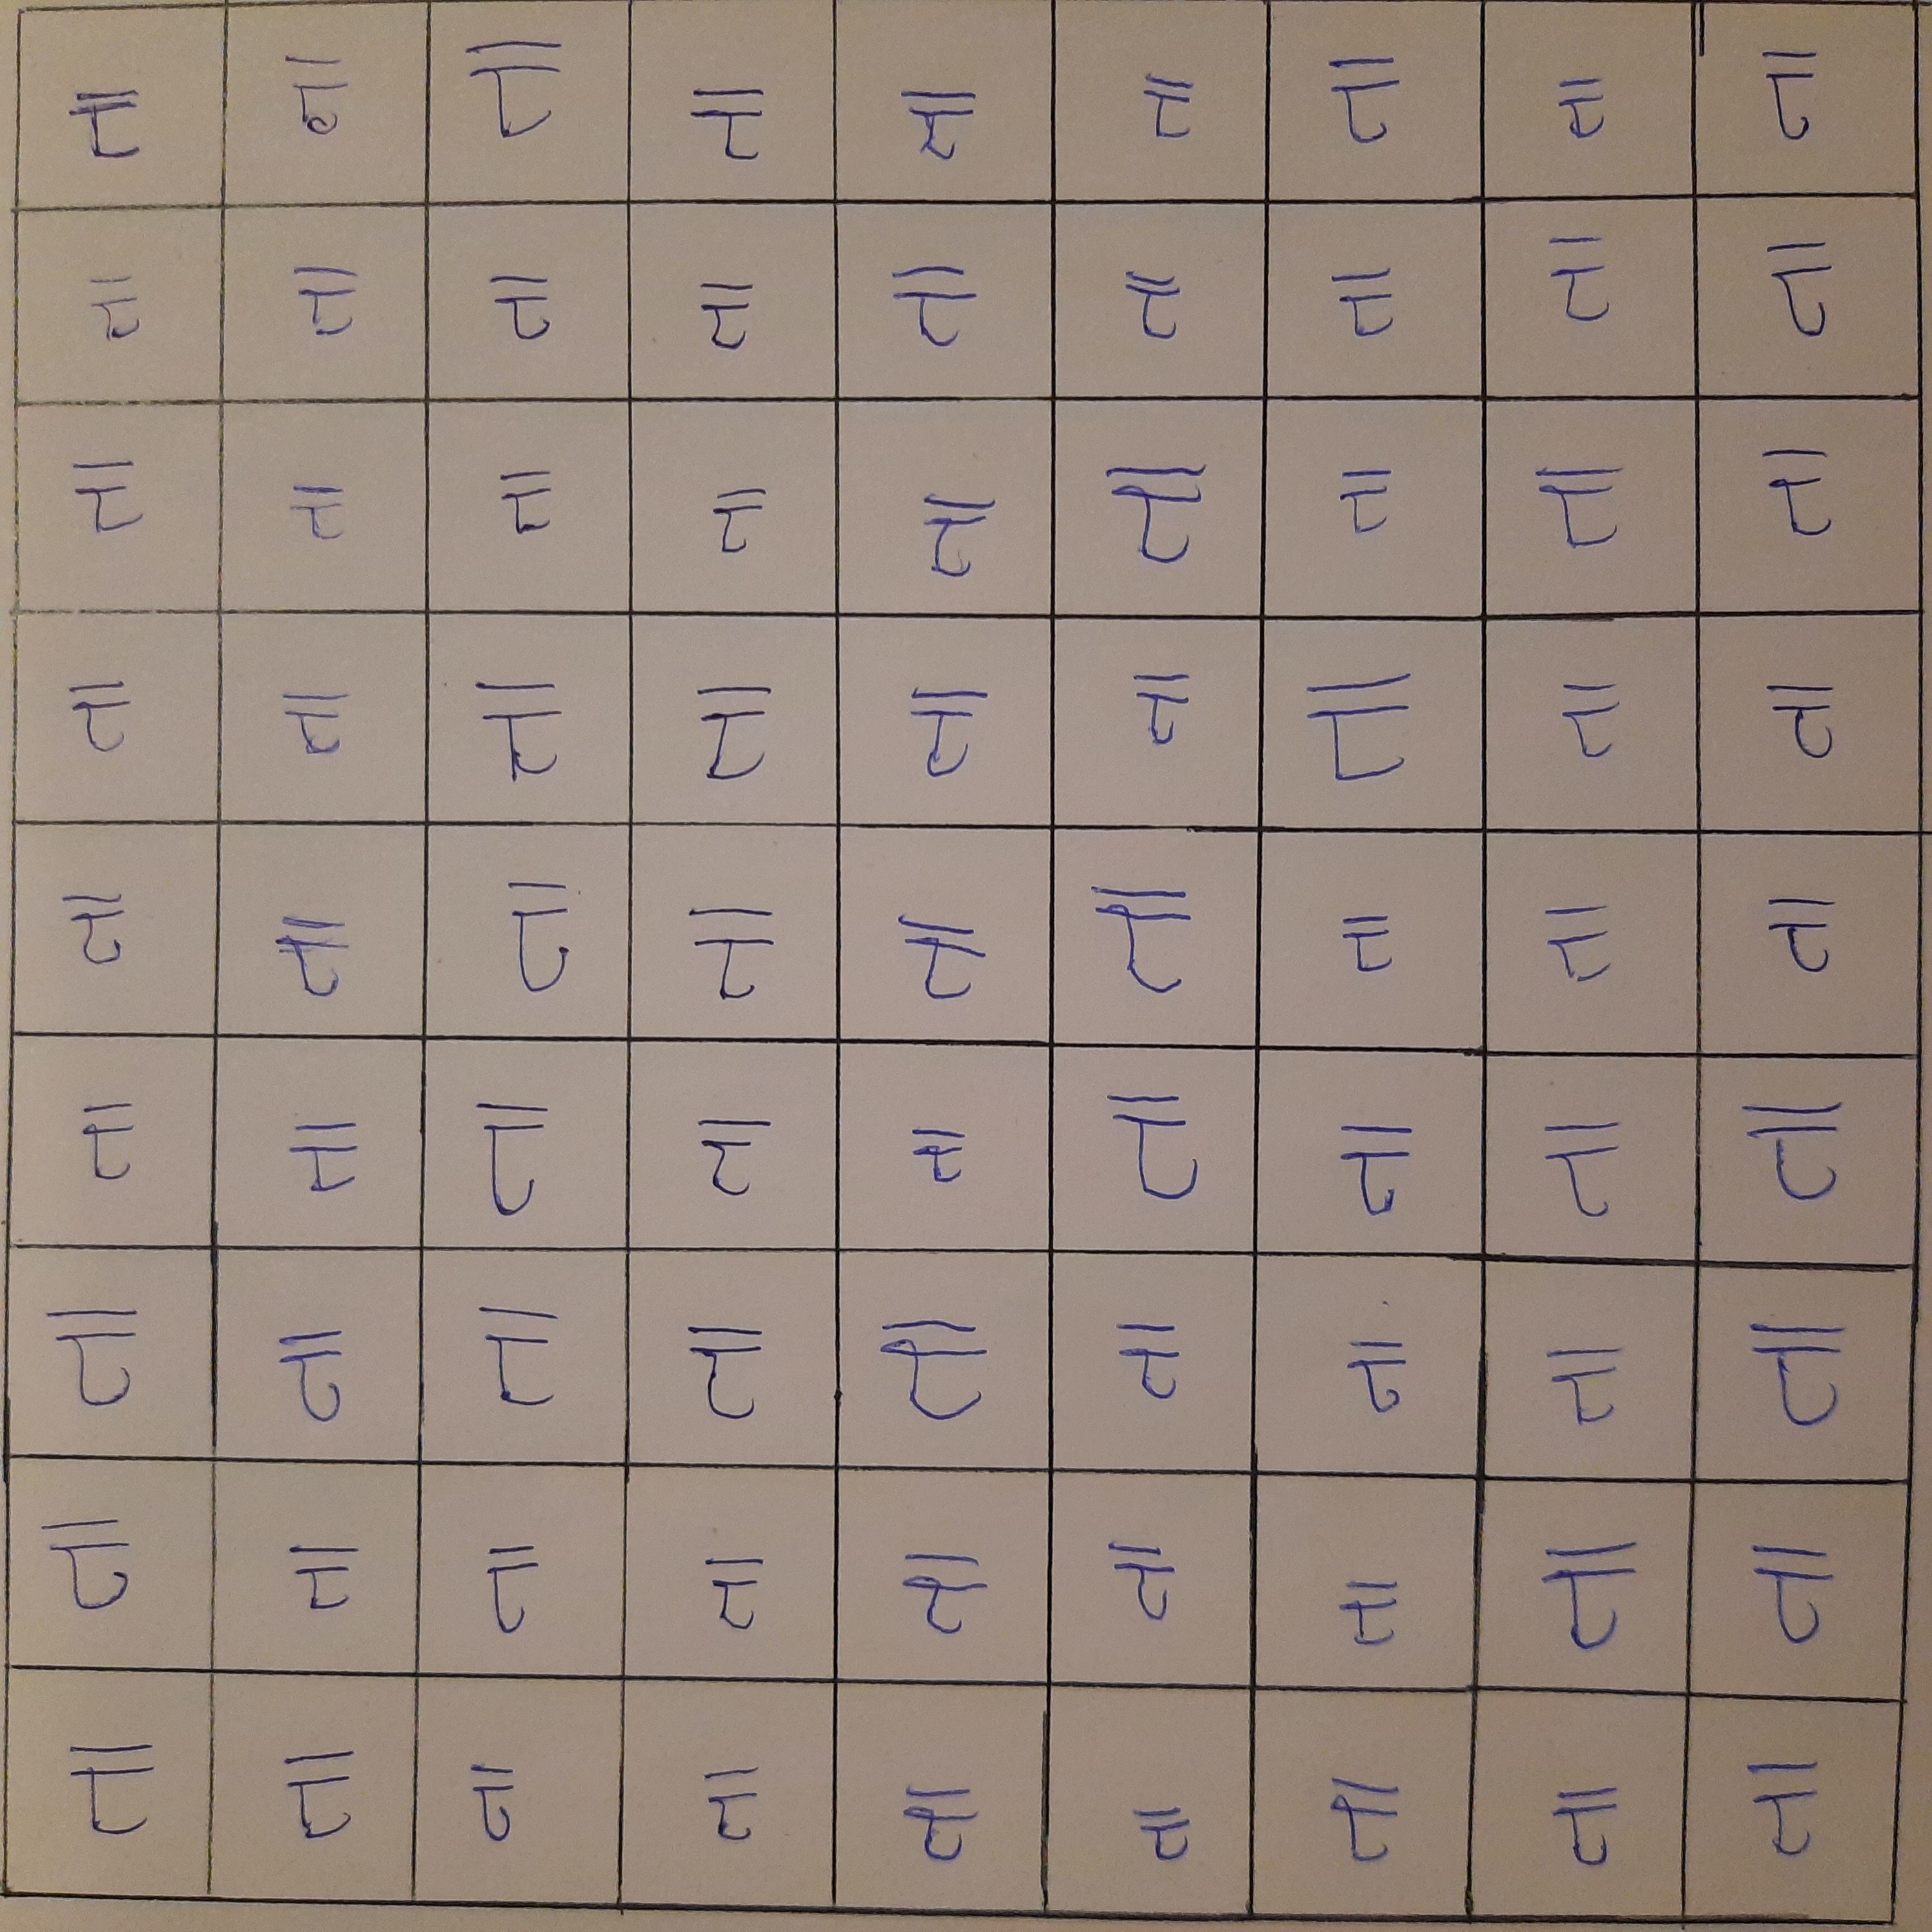 ता ता ता ता ता ता ता ता ता
ता ता ता ता ता ता ता ता ता
ता ता ता ता ता ता ता ता ता
ता ता ता ता ता ता ता ता ता
ता ता ता ता ता ता ता ता ता
ता ता ता ता ता ता ता ता ता
ता ता ता ता ता ता ता ता ता
ता ता ता ता ता ता ता ता ता
ता ता ता ता ता ता ता ता ता